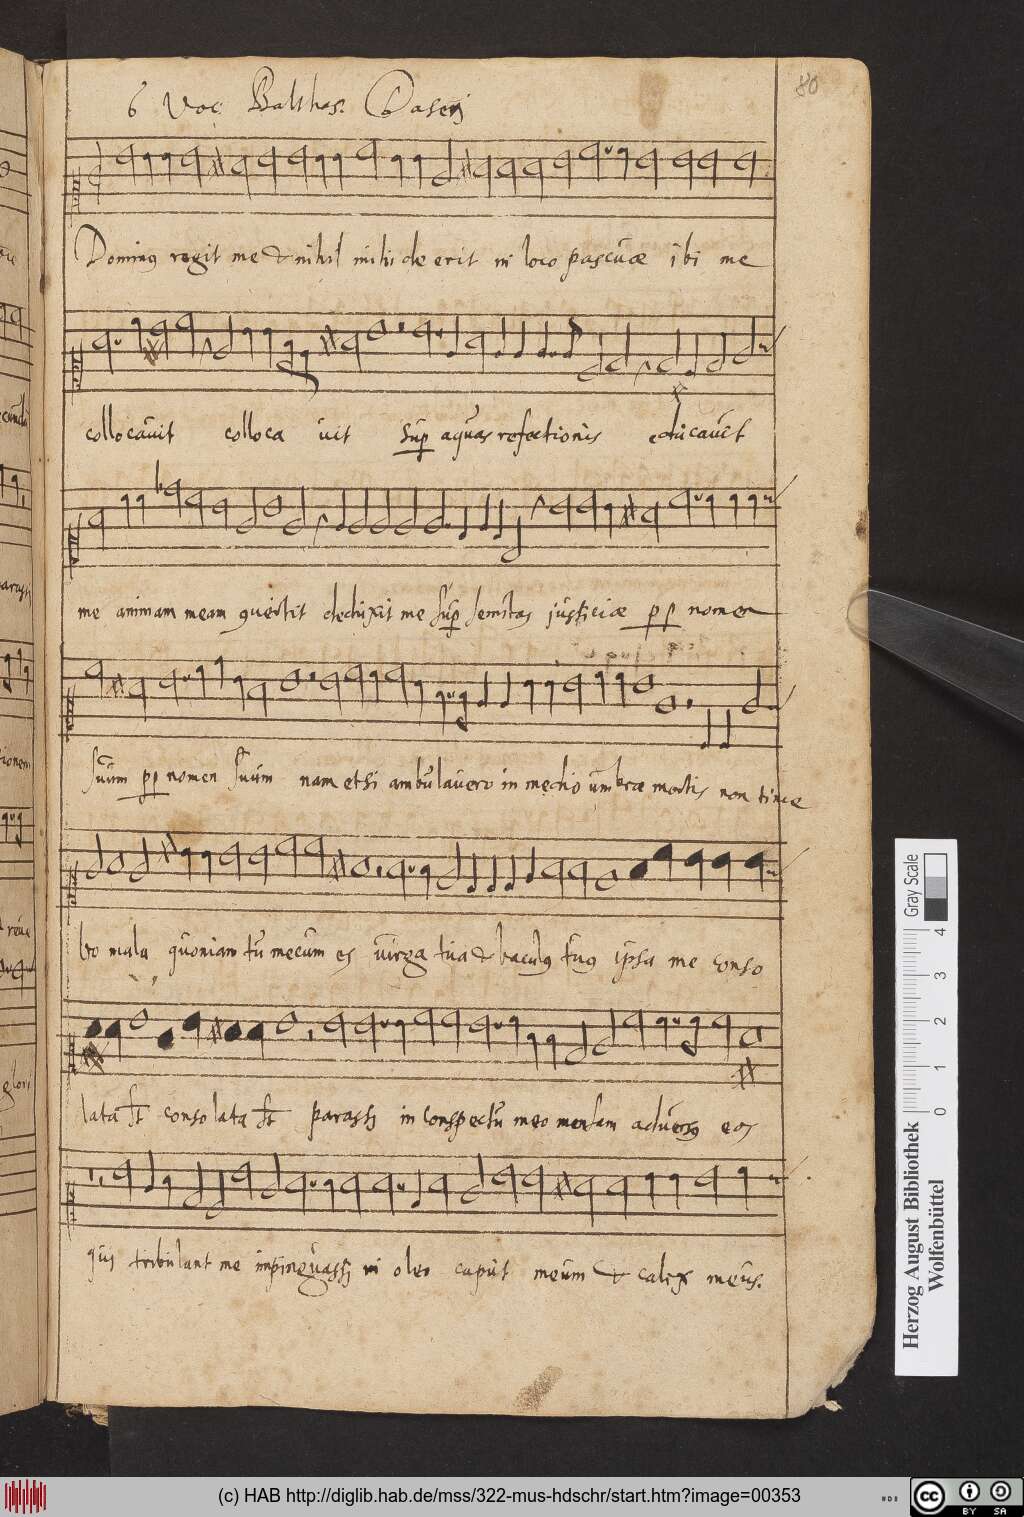 80
6 Voc. Balthas. Casei
Dominus regit me & nihil mihi de erit in loco pascuæ ibi me
collocavit colloca vit sup aquas refectionis educavit
me animam meam convertit deduxit me sup semitas justiciæ pp nomen
suum pp nomen suum nam etsi ambulavero in medio umbræ mortis non time
bo mala quoniam tu mecum es virga tua & baculus tuus ipsa me conso
lata st conso lata st parasti in conspectu meo mensam adversus eos
qui tribulant me impinguasti in oleo caput meum & calix meus.
Gray Scale
0 1 2 3 4
Herzog August Bibliothek
Wolfenbüttel
(c) HAB http://diglib.hab.de/mss/322-mus-hdschr/start.htm?image=00353
cc BY SA